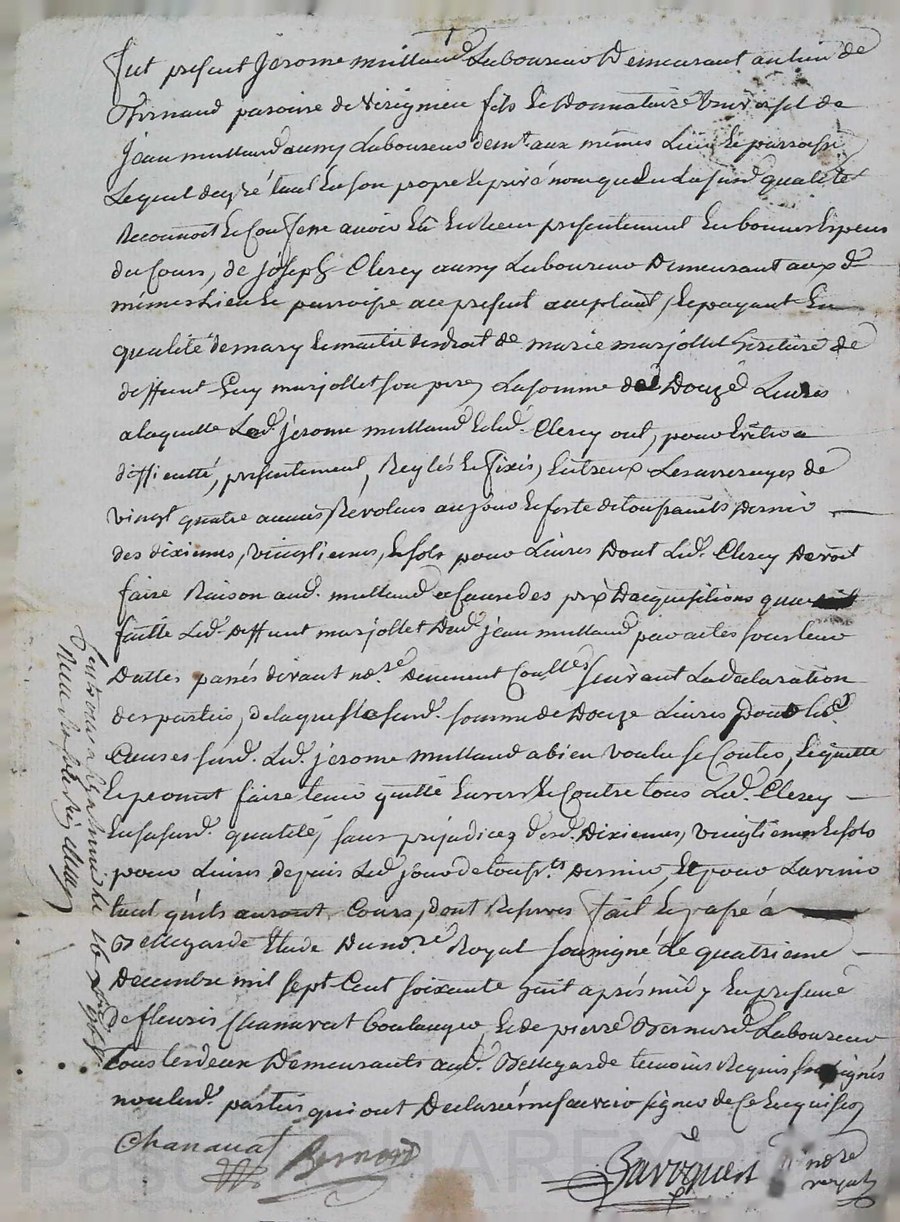 fut présent Jerome mullaud Laboureur Demeurant au lieu de
paroisse de fils et Donnataire universel de
Jean mullaud aussy Laboureur demt. aux mêmes Lieu et parroisse
Lequel de gré tant En son propre et privé nom qu'en La susd. qualité
Reconnoit et Confesse avoir Eu et Receu présentement En bonnes Espèces
du Cours, de Joseph Clerey aussy Laboureur Demeurant aux d.
mêmes Lieu et parroisse ace présent acceptant, et payant En
qualité de mary et maitre des droits de marie marjollet heritière de
deffunt Guy marjollet son pere, La somme de Douze Livres
a laquelle Led. jerome mullaud et led. Clerey ont, pour Eviter a
difficulté, présentement, Reglés et fixés, Entreux Les arrerages de
vingt quatre années Révolues au jour et feste de toussaints Dernier
des dixiemes, vingtiemes, et sols pour Livres Dont Led. Clerey Devoit
faire Raison aud. mullaud a Cause des prix Dacquisitions
faitte Led. deffunt marjollet Dud. jean mullaud par actes sous leur
Dattes passés devant nore. Deuement Conllés suivant La declaration
des parties, de laquelle susd. somme de Douze Livres pour les
Causes susd. Led. jerome mullaud a bien voulu se Conter, Lequitte
et promit faire tenir quitte Envers et Contre tous Led. Clerey
En sa susd. qualité, sans préjudice desd. Dixiemes, vingtiemes et sols
pour Livres depuis Led. jour de toussts. Dernier, Et pour Lavenir
tant quils auront Cours, dont Reserves fait et passé à
Bellegarde Etude Du nore. Royal soussigné Le quatrieme
Decembre mil sept Cent soixante huit après midy En présence
de fleuris Chanavat boulanger, et de pierre Bernard Laboureur
tous les deux Demeurants aud. Bellegarde temoins Requis soussignés
non lesd. parties qui ont Declaré ne sçavoir signer de Ce Enquises
Chanavat Bernard
nore
royal